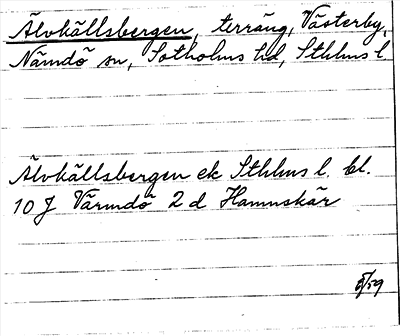 Älvkällsbergen, terräng, Västerby,
Nämdö sn, Sotholms hd, Sthlms l.
Älvkällsbergen ek Sthlms l. bl.
10 J Värmdö 2 d Hamnskär